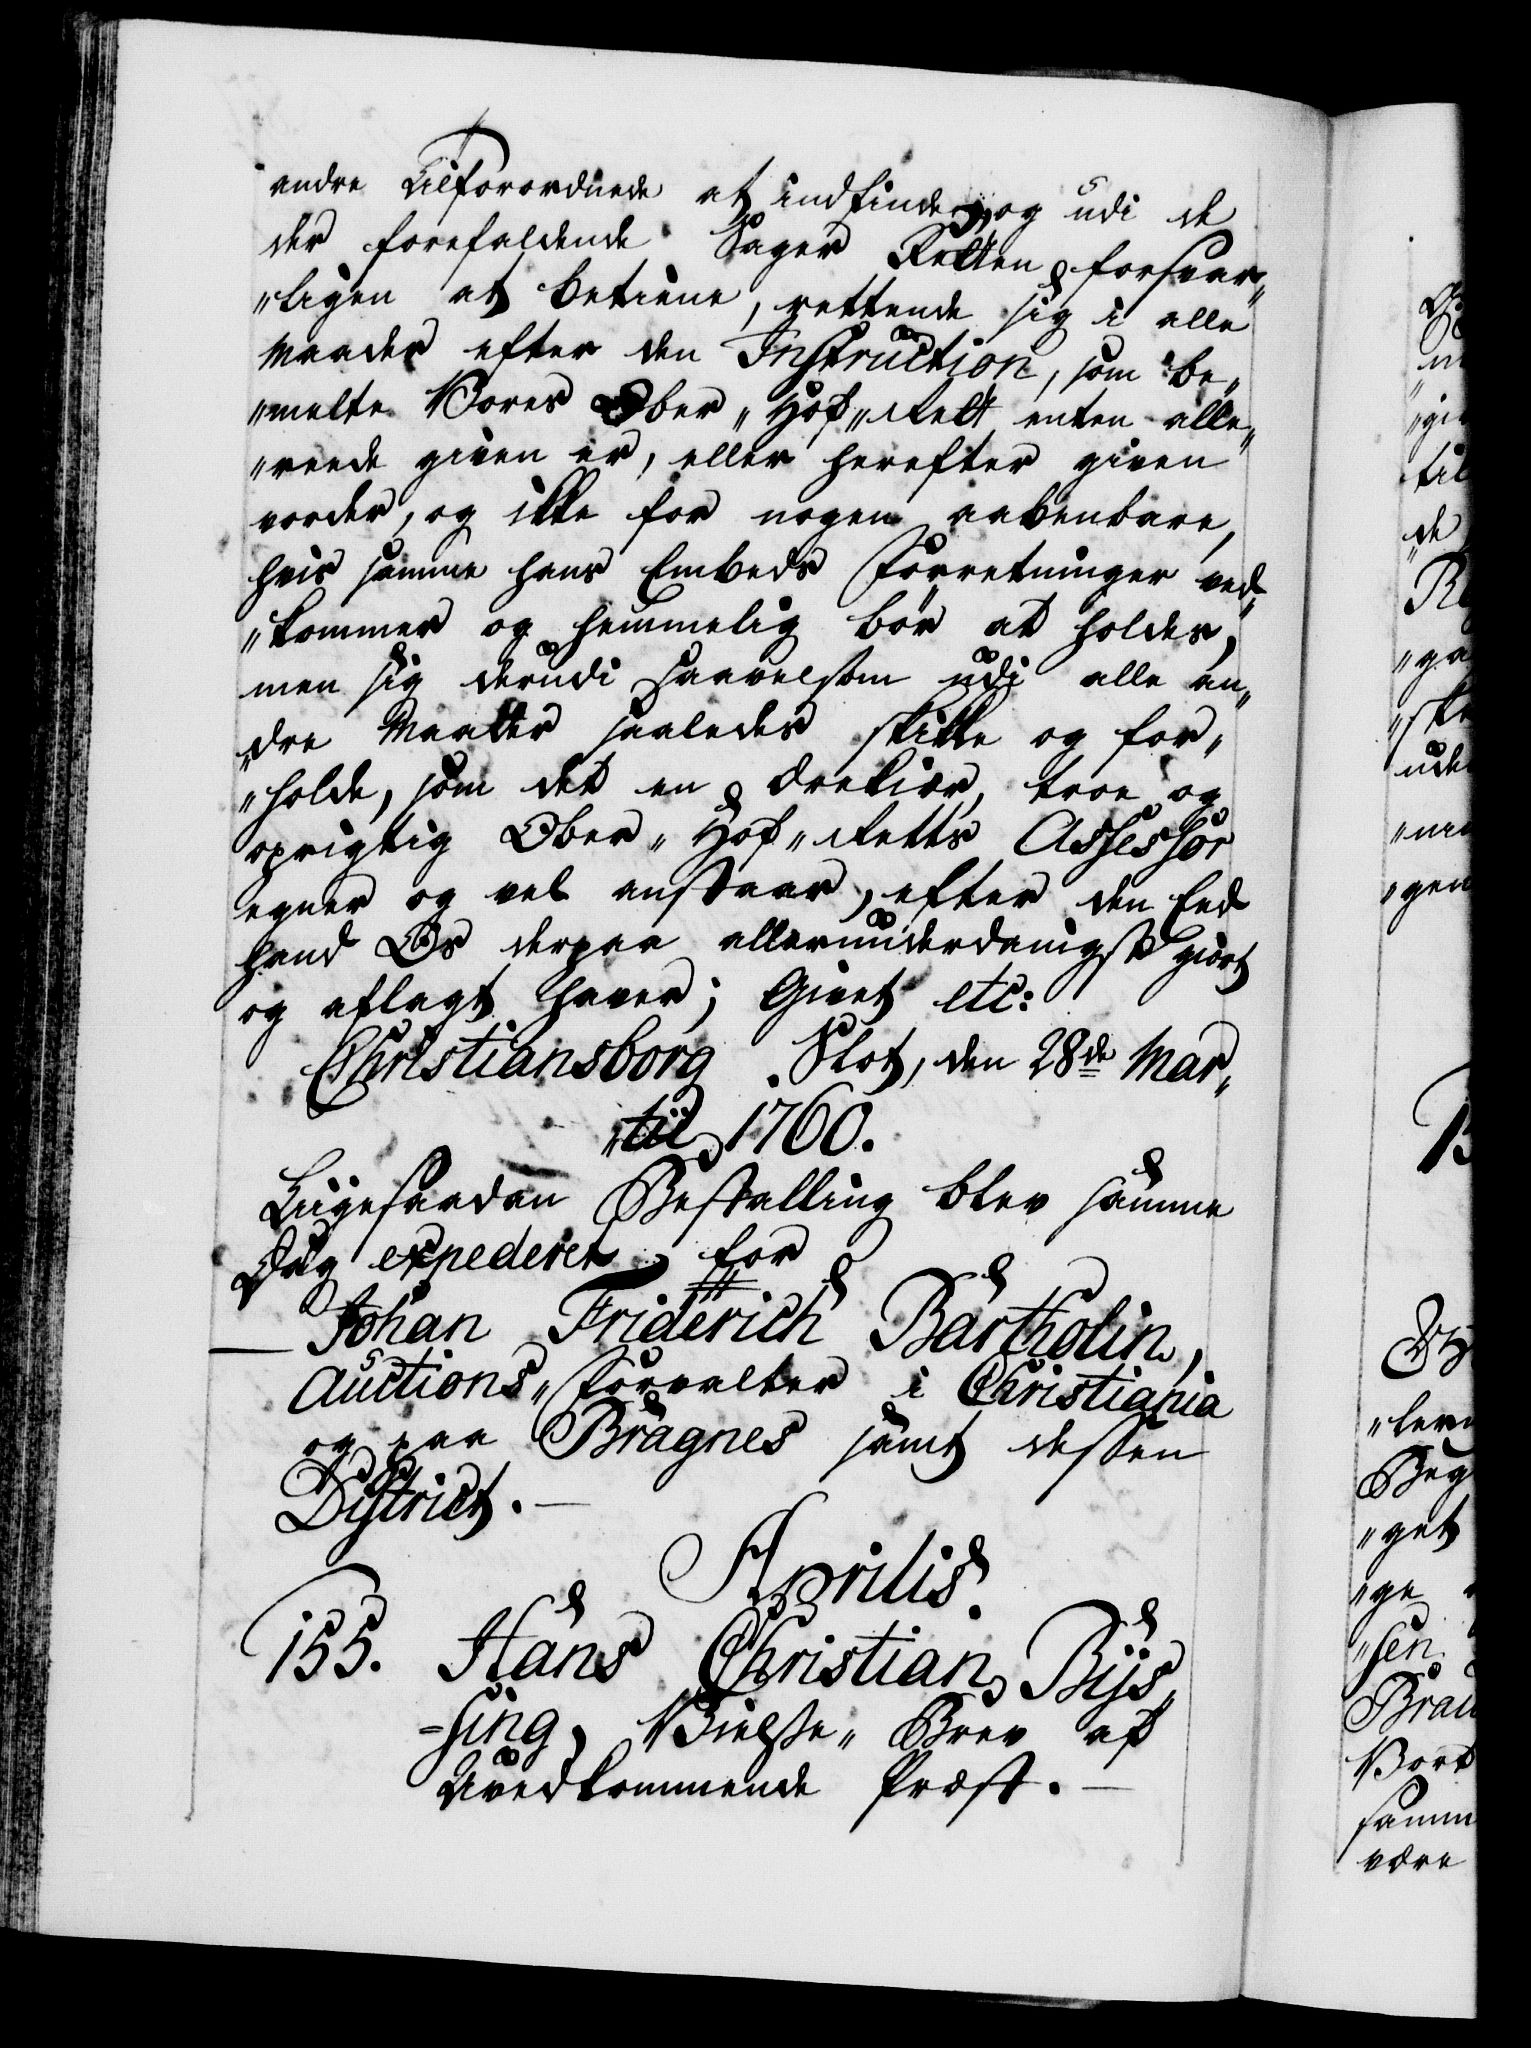 andre Tilforordnede at indfinde, og udi de
der forefaldende Sager Retten forsvar„
„ligen at betiene, rettende sig i alle
Maader efter den Instruction, som be„
„melte Vores Ober„Hof„Rett enten alle„
„reede given er, eller herefter given
vorder, og ikke for nogen aabenbare,
hvis samme hans Embeds Forretninger ved„
„kommer og hemmelig bör at holdes,
men sig derudi saavelsom udi alle an„
„dre Maader saaledes skikke og for„
„holde, som det en Ærekiær, troe og
oprigtig Ober„Hof„Retts Assessor
egner og vel anstaar, efter den Eed
hand Os derpaa allerunderdanigst giort
og aflagt haver; Givet etc:
Christiansborg Slot, den 28de Mar„
„tii 1760.
Liigesaadan Bestalling blev samme
Dag expederet for
Johan Friderich Bartholin,
Auctions„Forvalter i Christiania
og paa Bragnes samt dessen
District. —
Aprilis.
155. Hans Christian Bys„
=sing, Vielse„Brev af
Uvedkommende Præst. —